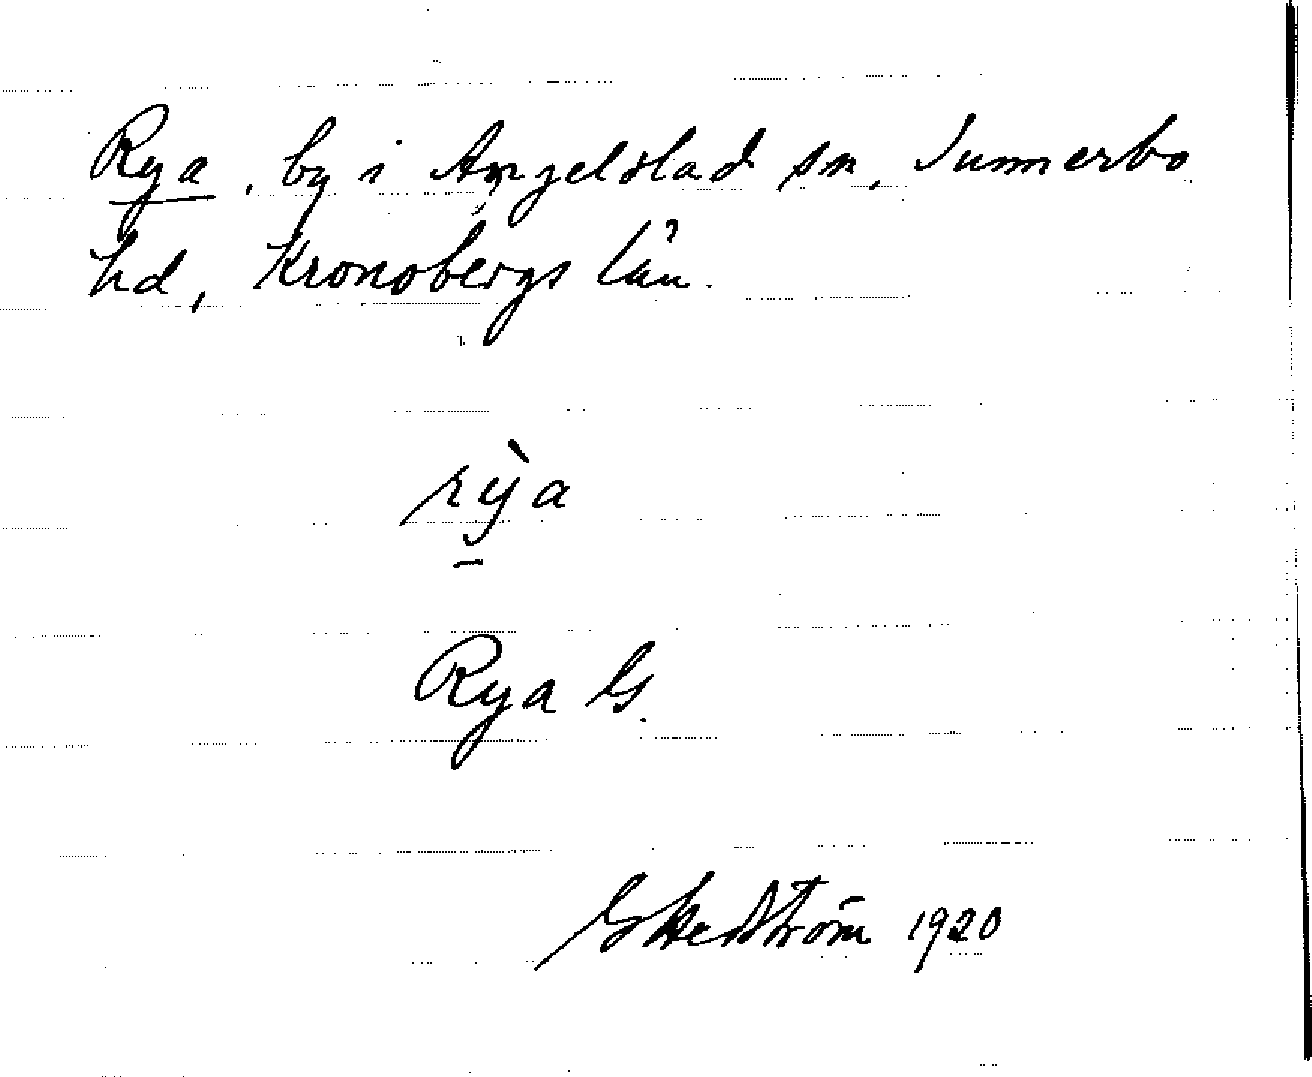 Rya, by i Angelstad sn, Sunnerbo
hd, Kronobergs län.
rỳa
Rya G.
G Hedström 1920